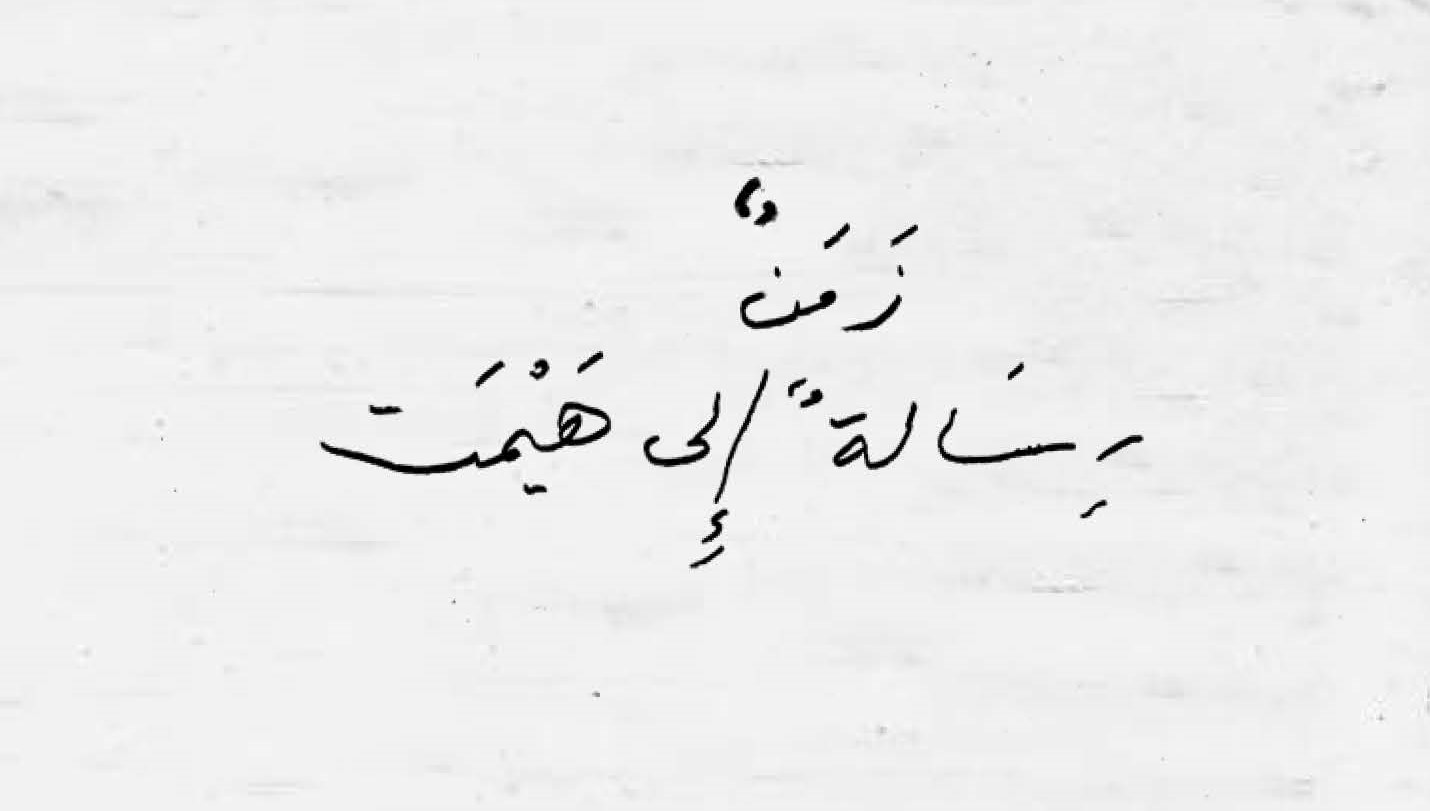 زَمَنٌ
رِسَالةٌ إِلى هَيْمَت